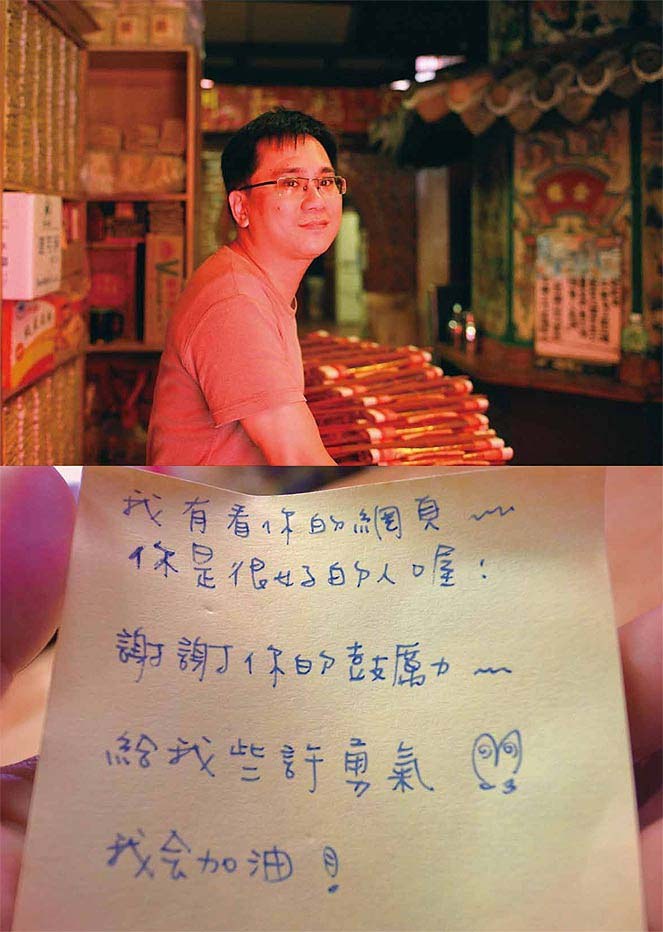 我有看你的網頁～
你是很好的人喔！
謝謝你的鼓厲力～
給我些許勇氣
我会加油！